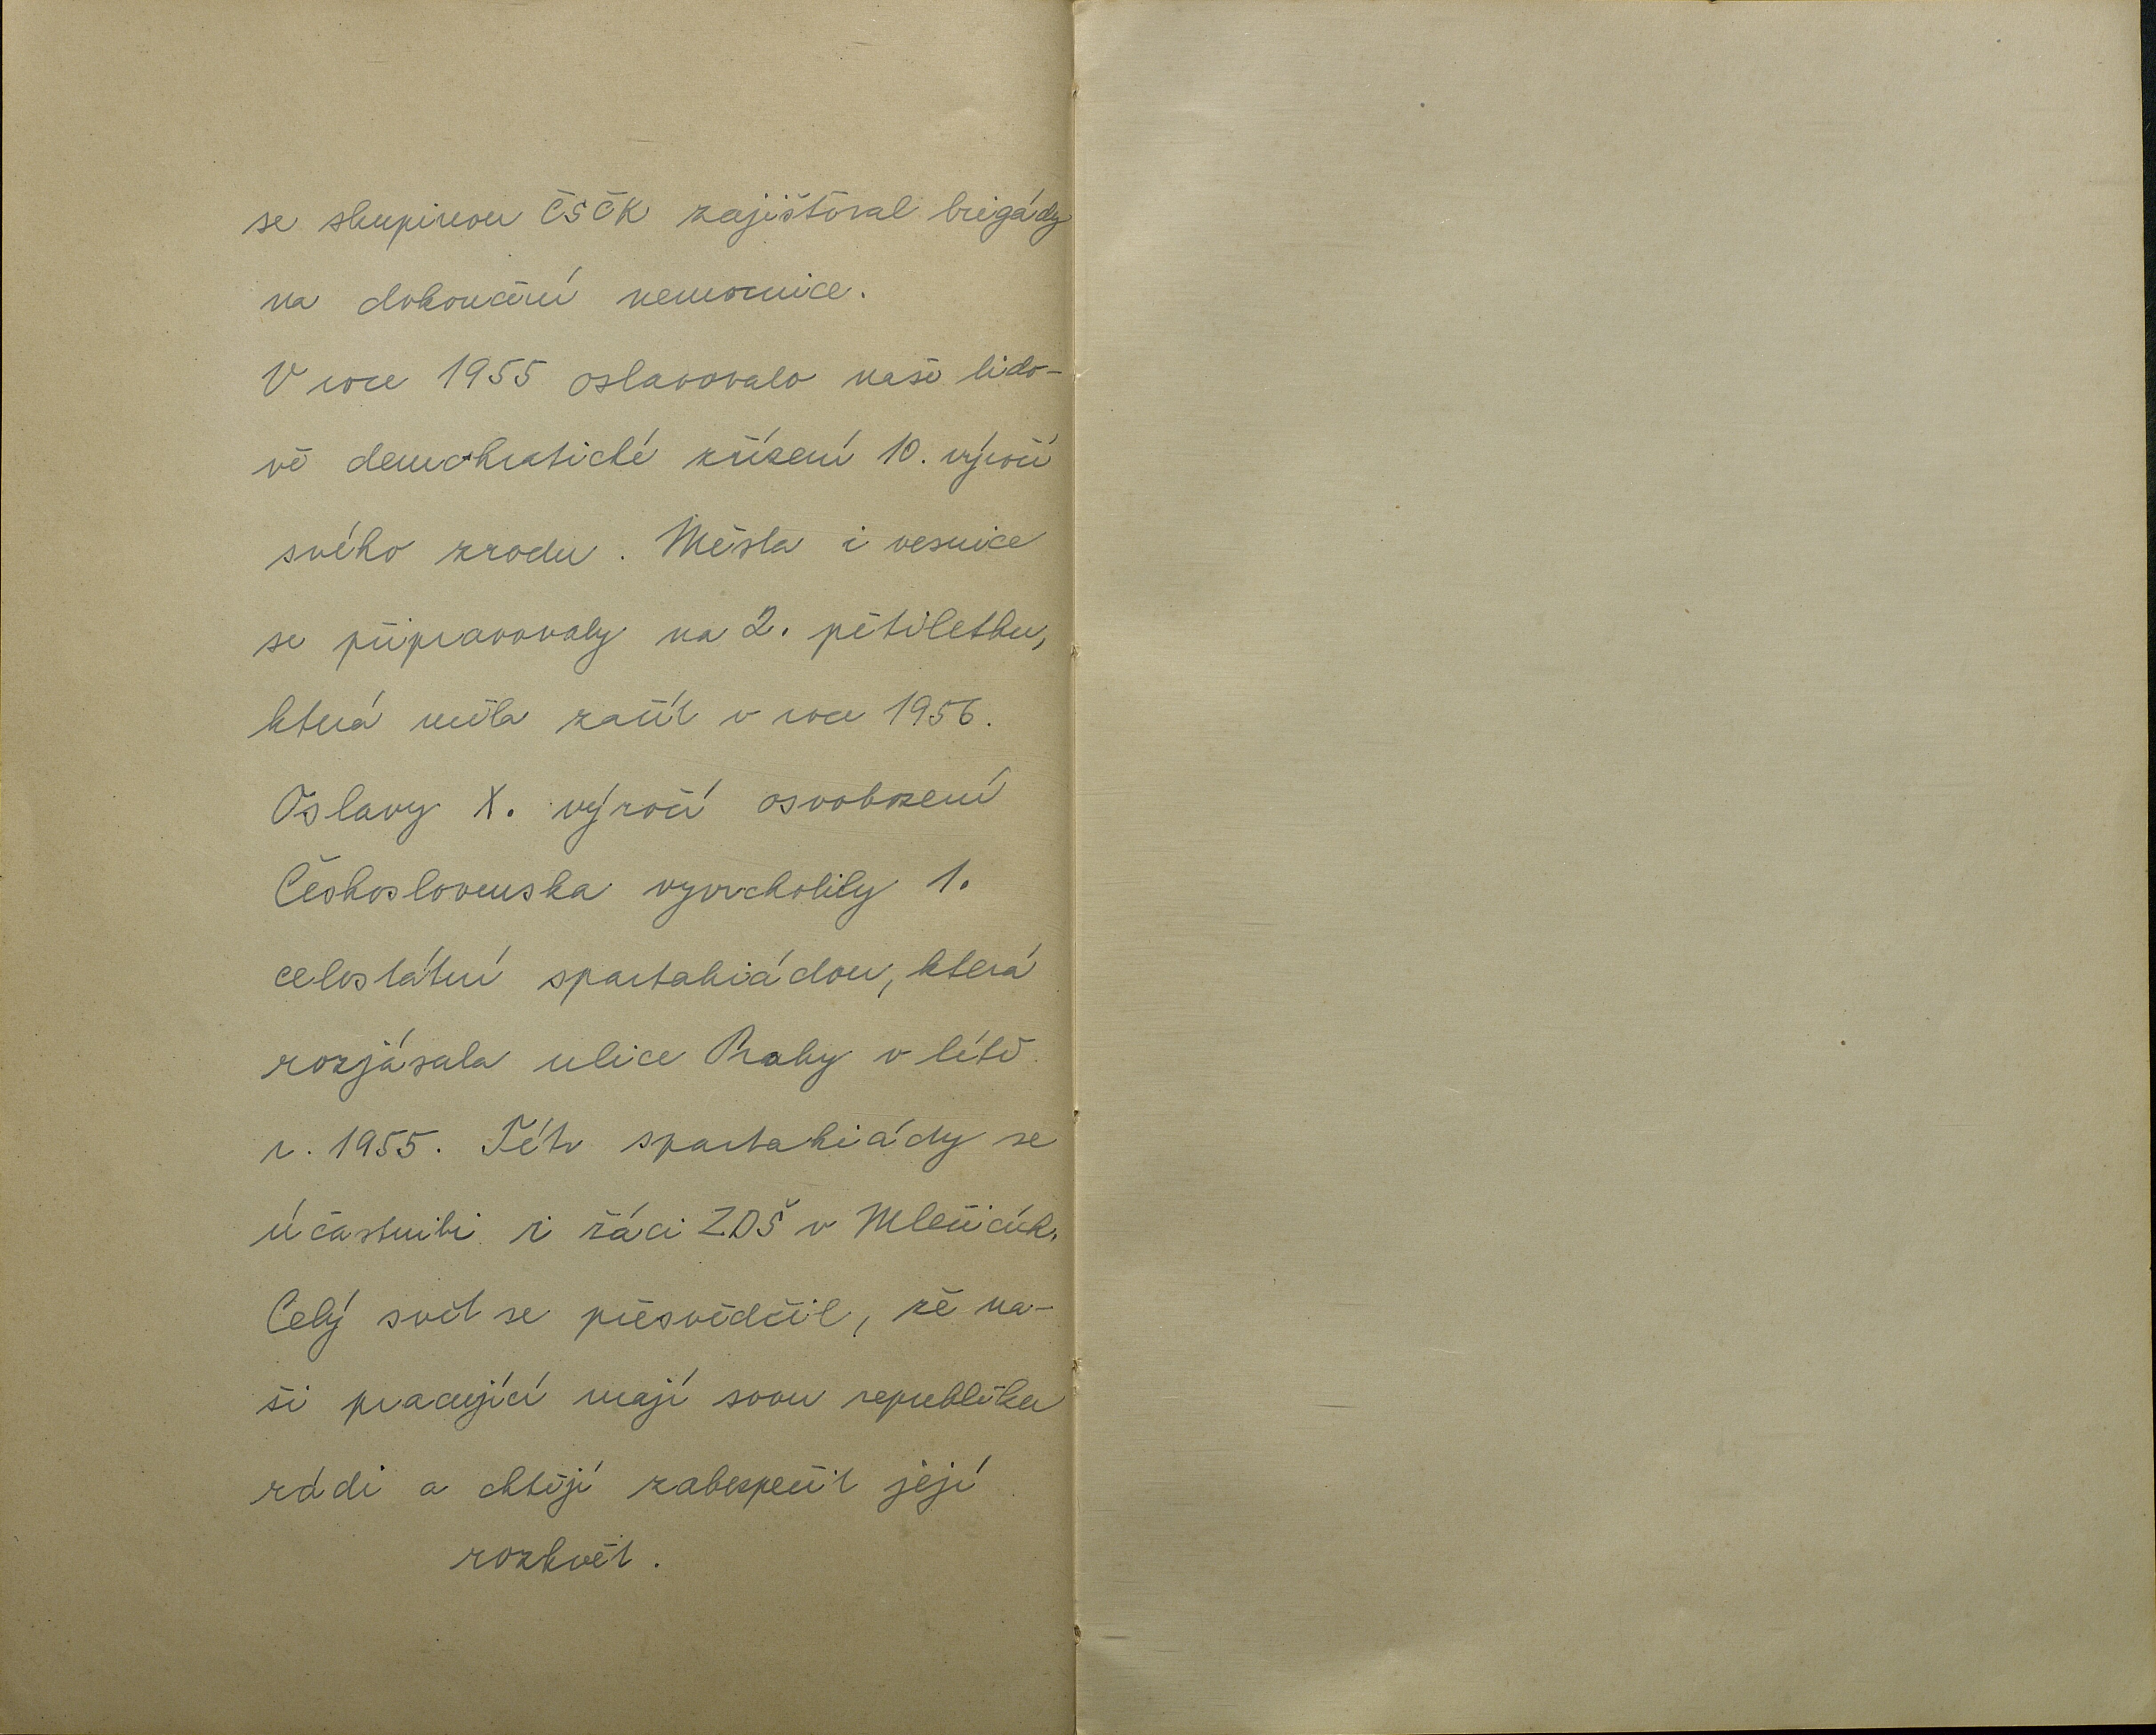 se skupinou ČSČK zajišťoval brigády
na dokončení nemocnice.
V roce 1955 oslavovalo naše lido-
vě demokratické zřízení 10. výročí
svého zrodu. Města i vesnice
se připravovaly na 2. pětiletku,
která měla začít v roce 1956.
Oslavy X. výročí osvobození
Československa vyvrcholily 1.
celostátní spartakiádou, která
rozjásala ulice Prahy v létě
r. 1955. Této spartakiády se
účastnili i žáci ZDŠ v Mlečicích.
Celý svět se přesvědčil, že na-
ši pracující mají svou republiku
rádi a chtějí zabezpečit její
rozkvět.